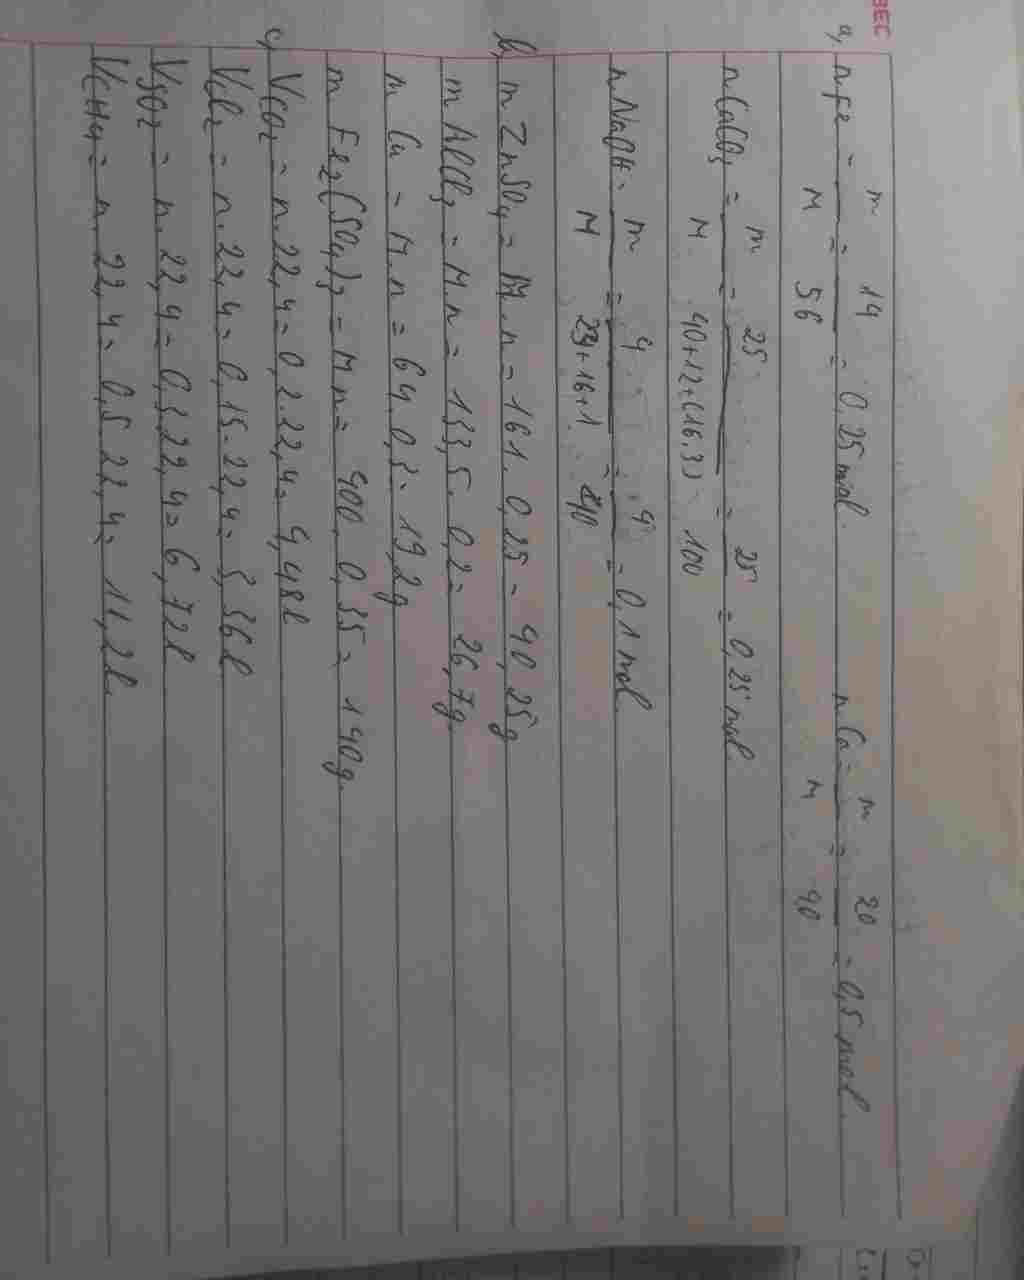 BEC
a, nFe = m/M = 14/56 = 0,25 mol. nCa = m/M = 20/40 = 0,5 mol.
nCaCO3 = m/M = 25/40+12+(16.3) = 25/100 = 0,25 mol.
nNaOH = m/M = 4/23+16+1 = 4/40 = 0,1 mol.
b, mZnSO4 = M.n = 161.0,25 = 40,25g
mAlCl3 = M.n = 133,5.0,2 = 26,7g.
mCu = M.n = 64.0,3 = 19,2g
mFe2(SO4)3 = M.n = 400.0,35 = 140g.
c, VCO2 = n.22,4 = 0,2.22,4 = 4,48l
VCl2 = n.22,4 = 0,15.22,4 = 3,36l
VSO2 = n.22,4 = 0,3.22,4 = 6,72l
VCH4 = n.22,4 = 0,5.22,4 = 11,2l.